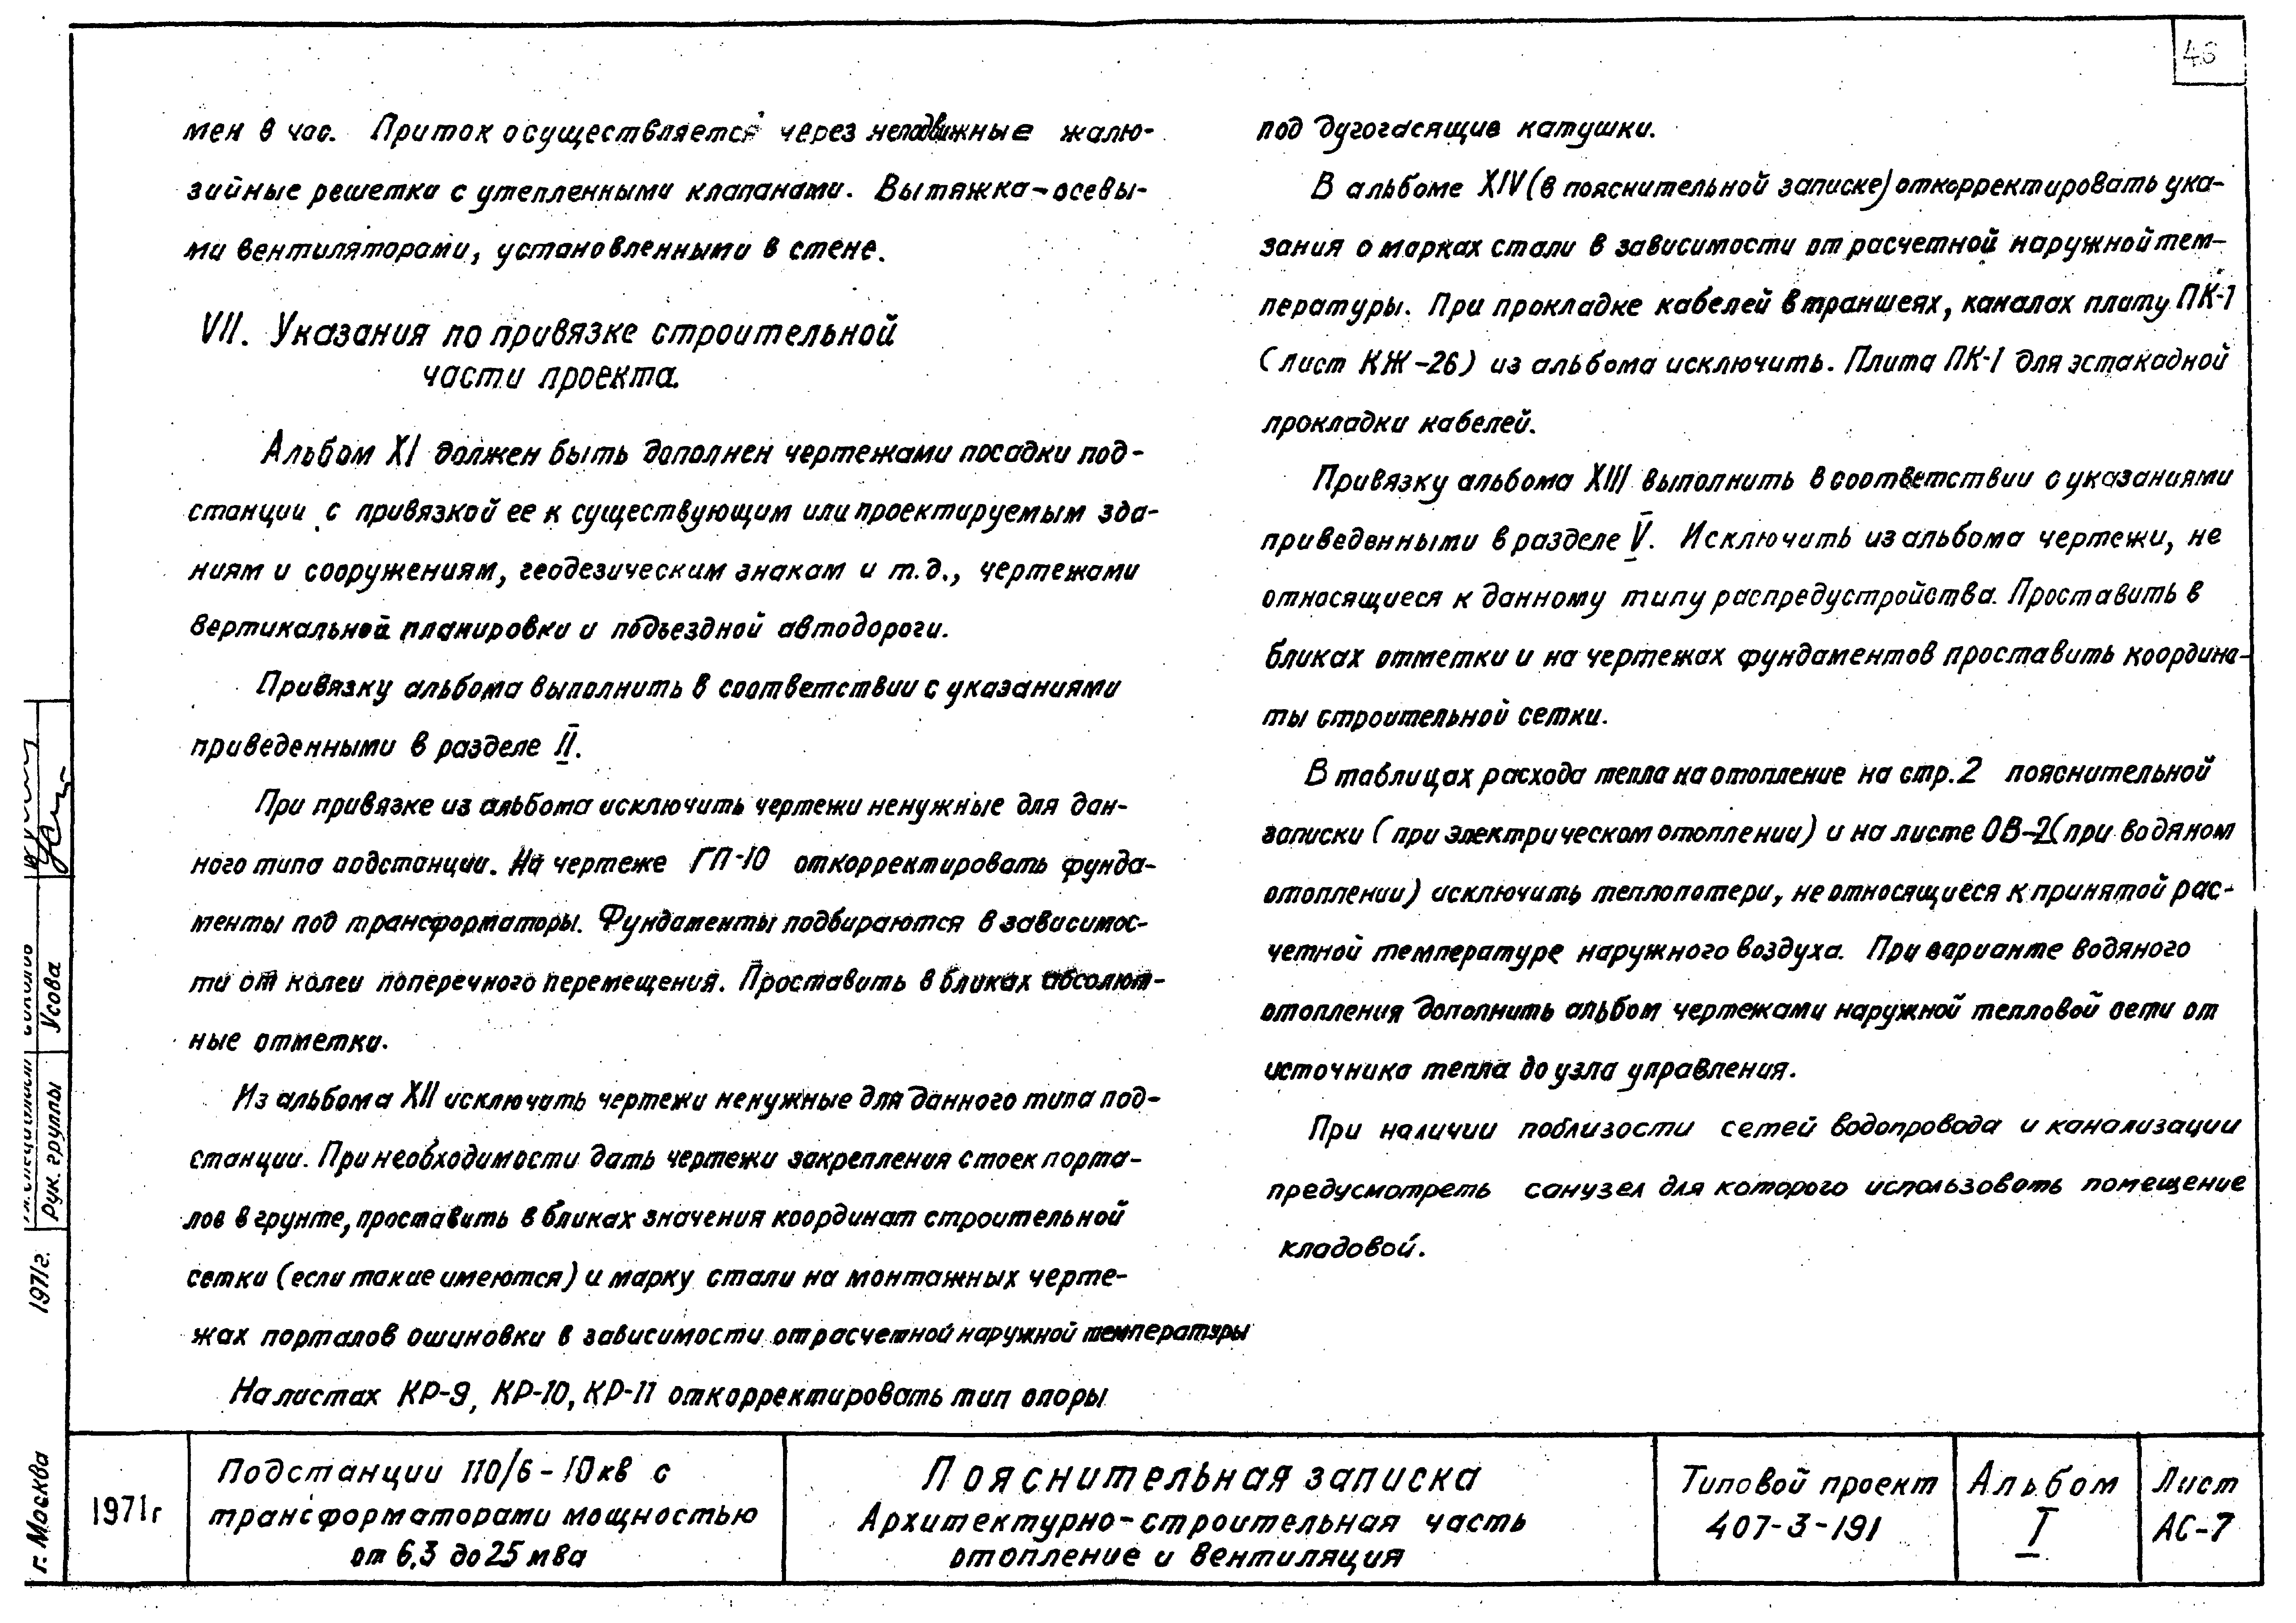 мен в час. Приток осуществляется через неподвижные жалю-
зийные решетки с утепленными клапанами. Вытяжка - осевы-
ми вентиляторами, установленными в стене.
VII. Указания по привязке строительной
части проекта.
Альбом XI должен быть дополнен чертежами посадки под-
станции с привязкой ее к существующим или проектируемым зда-
ниям и сооружениям, геодезическим знакам и т.д., чертежами
вертикальной планировки и подъездной автодороги.
Привязку альбома выполнить в соответствии с указаниями
приведенными в разделе II.
При привязке из альбома исключить чертежи ненужные для дан-
ного типа подстанции. На чертеже ГП-10 откорректировать фунда-
менты под трансформаторы. Фундаменты подбираются в зависимос-
ти от колеи поперечного перемещения. Проставить в бликах абсолют-
ные отметки.
Из альбома XII исключить чертежи ненужные для данного типа под-
станции. При необходимости дать чертежи закрепления стоек порта-
лов в грунте, проставить в бликах значения координат строительной
сетки (если такие имеются) и марку стали на монтажных черте-
жах порталов ошиновки в зависимости от расчетной наружной температуры
На листах КР-9, КР-10, КР-11 откорректировать тип опоры
48
под дугогасящие катушки.
В альбоме XIV (в пояснительной записке) откорректировать ука-
зания о марках стали в зависимости от расчетной наружной тем-
пературы. При прокладке кабелей в траншеях, каналах плиту ПК-1
(лист КЖ-26) из альбома исключить. Плита ПК-1 для эстакадной
прокладки кабелей.
Привязку альбома XIII выполнить в соответствии с указаниями
приведенными в разделе V. Исключить из альбома чертежи, не
относящиеся к данному типу распредустройства. Проставить в
бликах отметки и на чертежах фундаментов проставить координа-
ты строительной сетки.
В таблицах расхода тепла на отопление на стр. 2 пояснительной
записки (при электрическом отоплении) и на листе ОВ-2 (при водяном
отоплении) исключить теплопотери, не относящиеся к принятой рас-
четной температуре наружного воздуха. При варианте водяного
отопления дополнить альбом чертежами наружной тепловой сети от
источника тепла до узла управления.
При наличии поблизости сетей водопровода и канализации
предусмотреть санузел для которого использовать помещение
кладовой.
Усова
рук. группы
1971г.
г. Москва
1971г
Подстанции 110/6-10кв с
трансформаторами мощностью
от 6,3 до 25 мва
Пояснительная записка
Архитектурно-строительная часть
отопление и вентиляция
Типовой проект
407-3-191
Альбом
I
Лист
АС-7